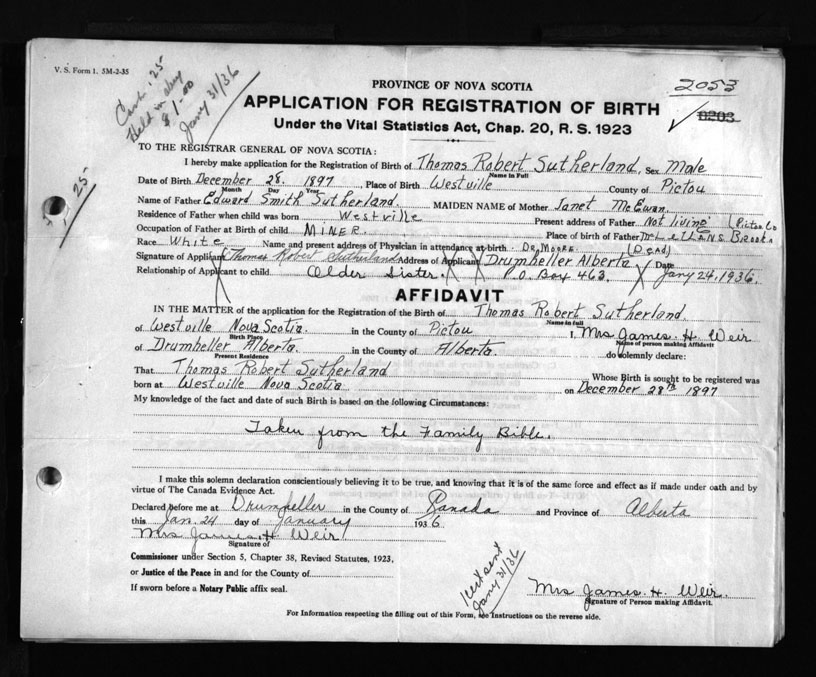 V. S. Form 1. 5M-2-35
Cert. .25
Held in dep
$1.00
Jany 31/36
.25
2053
PROVINCE OF NOVA SCOTIA
APPLICATION FOR REGISTRATION OF BIRTH
Under the Vital Statistics Act, Chap. 20, R. S. 1923
TO THE REGISTRAR GENERAL OF NOVA SCOTIA:
I hereby make application for the Registration of Birth of Thomas Robert Sutherland, Sex Male
Name in Full
Date of Birth December 28. 1897, Place of Birth Westville County of Pictou
Month Day Year
Name of Father Edward Smith Sutherland. MAIDEN NAME of Mother Janet McEwan.
Residence of Father when child was born Westville Present address of Father Not living (Pictou Co
Occupation of Father at Birth of child MINER. Place of birth of Father McLELLANS BROOK
Race White Name and present address of Physician in attendance at birth. DR. MOORE. (DEAD)
Signature of Applicant Thomas Robert Sutherland Address of Applicant Drumheller Alberta Date
Relationship of Applicant to child Older Sister. P.O. Box 463. Jany 24, 1936.
AFFIDAVIT
IN THE MATTER of the application for the Registration of the Birth of Thomas Robert Sutherland.
Name in full
of Westville Nova Scotia. in the County of Pictou I, Mrs James. H. Weir
Birth Place Name of person making Affidavit
of Drumheller Alberta. in the County of Alberta. do solemnly declare:
Present Residence
That Thomas Robert Sutherland Whose Birth is sought to be registered was
born at Westville Nova Scotia on December 28th 1897
My knowledge of the fact and date of such Birth is based on the following Circumstances:
Taken from the Family Bible.
I make this solemn declaration conscientiously believing it to be true, and knowing that it is of the same force and effect as if made under oath and by
virtue of The Canada Evidence Act.
Declared before me at Drumheller in the County of Canada and Province of Alberta
this Jan. 24 day of January 1936.
Mrs James H Weir
Signature of
Commissioner under Section 5, Chapter 38, Revised Statutes, 1923,
or Justice of the Peace in and for the County of
If sworn before a Notary Public affix seal.
Cert sent
Jany 31/36
Mrs James. H. Weir.
Signature of Person making Affidavit.
For Information respecting the filling out of this Form, see Instructions on the reverse side.